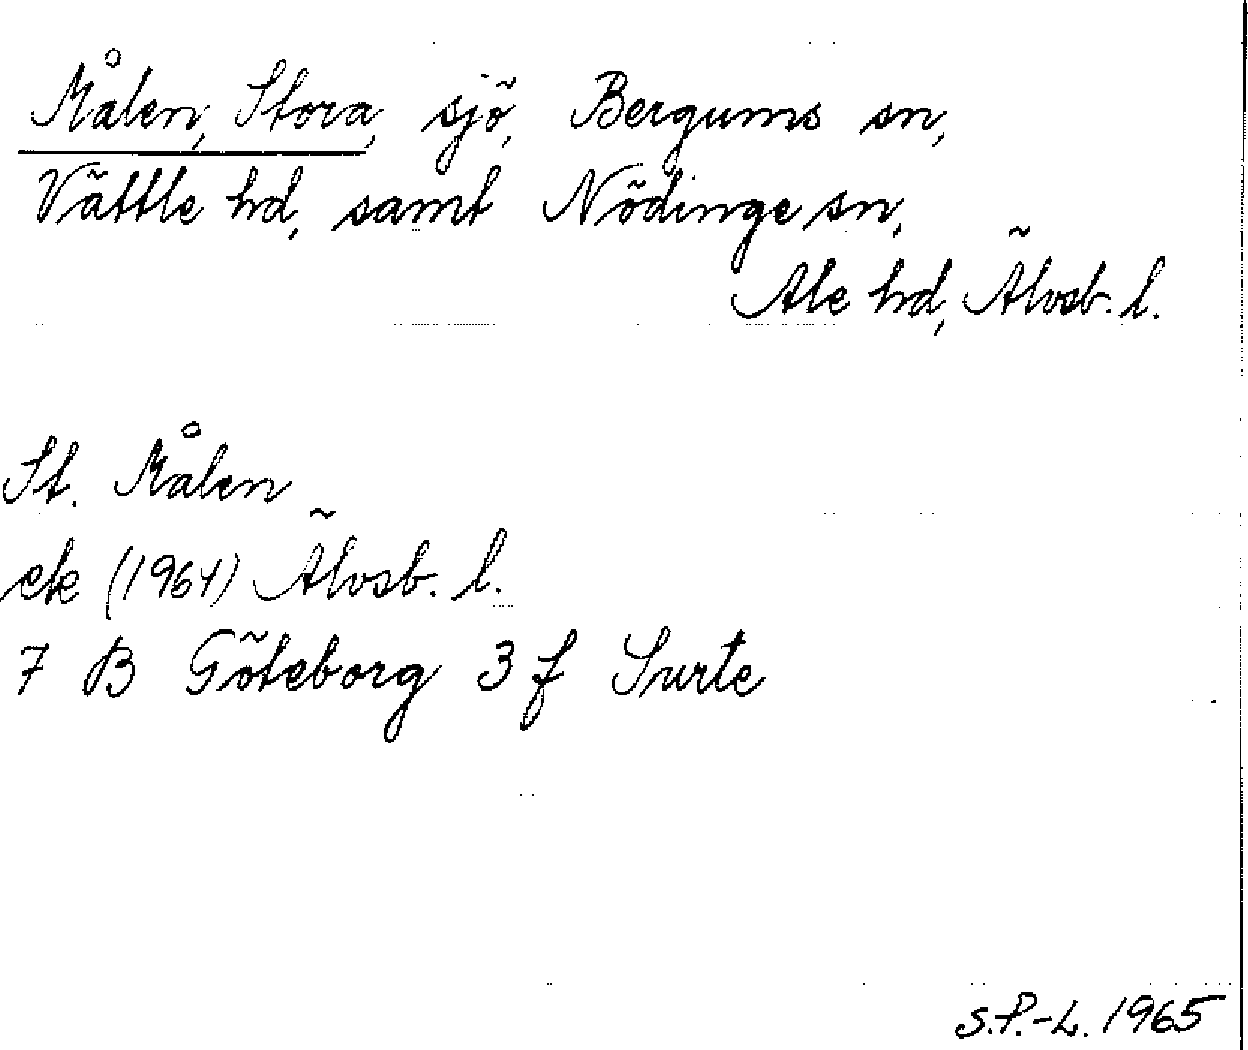 Målen, Stora, sjö, Bergums sn,
Vättle hd, samt Nödinge sn,
Ale hd, Älvsb. l.
St. Målen
ek (1964) Älvsb. l.
7 B Göteborg 3 f Surte
S.P.-L. 1965